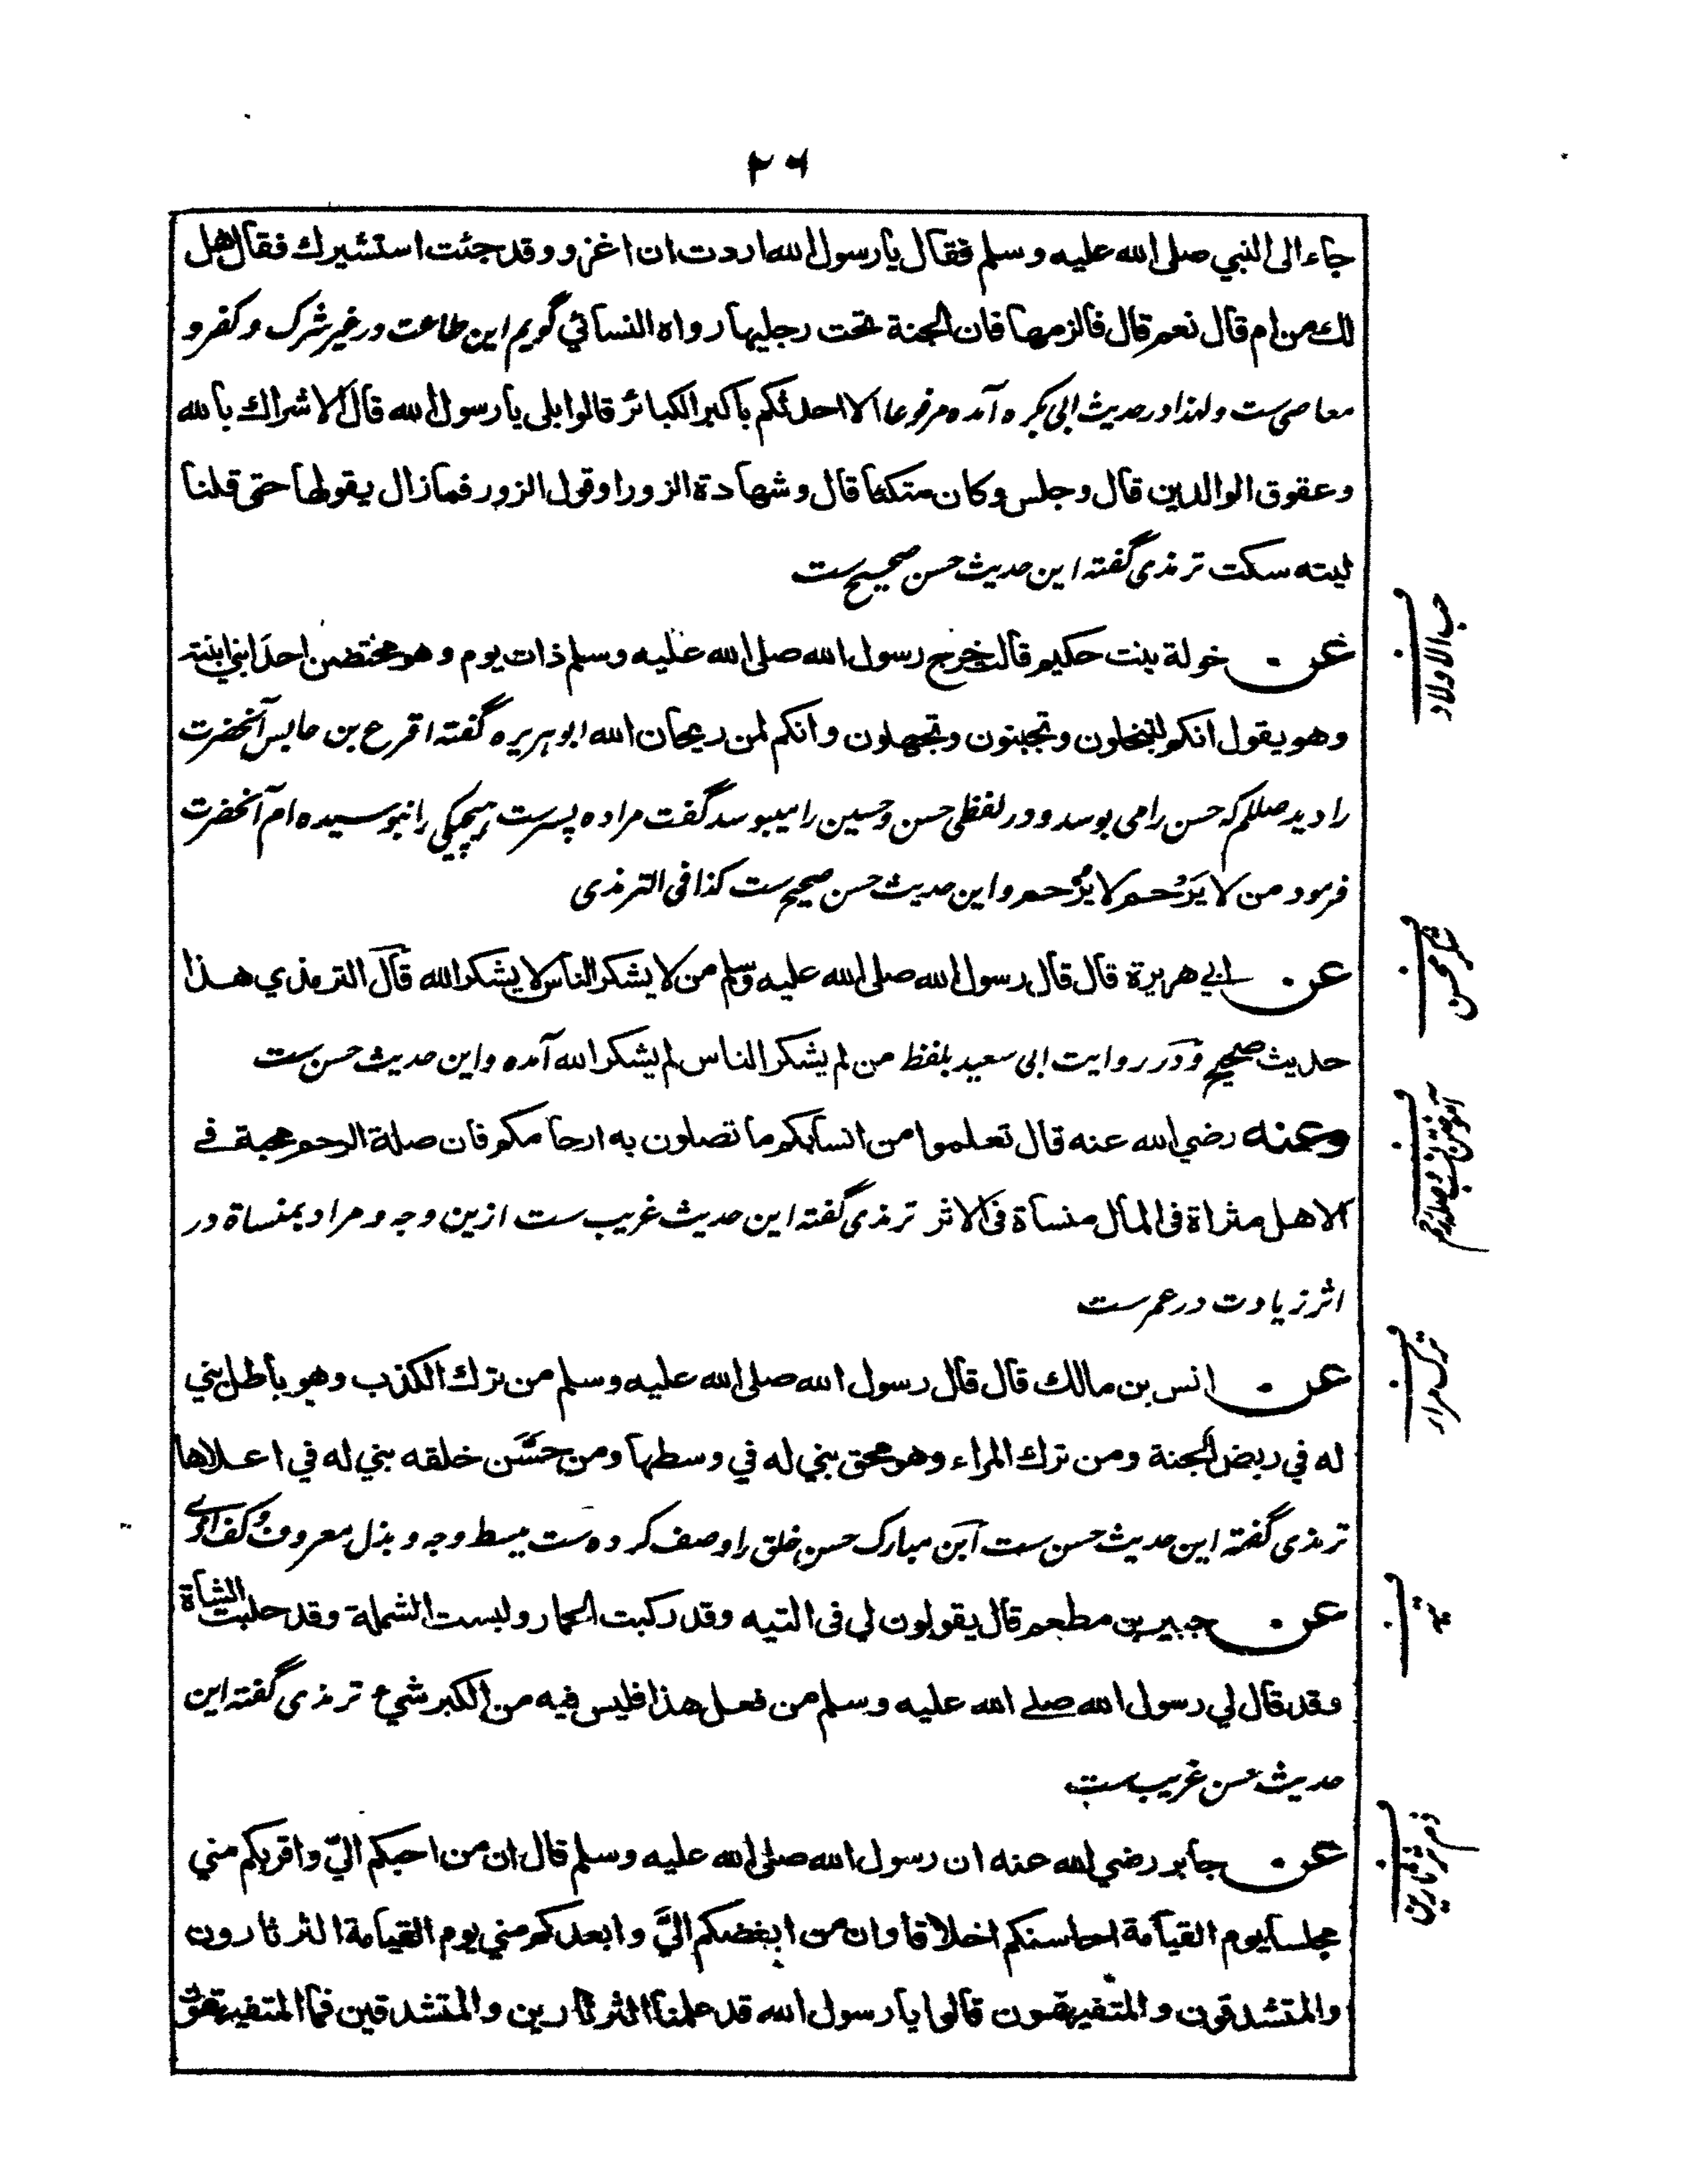 ٢٦
جاء الى النبي صلى الله عليه وسلم فقال يا رسول الله اردت ان اغزو وقد جئت استشيرك فقال هل
لك من ام قال نعم قال فالزمها فان الجنة تحت رجليها رواه النسائي گویم این طاعت در غیر شرک و کفر و
معاصی ست ولهذا در حدیث ابی بکره آمده مرفوعا الا احدثكم باكبر الكبائر قالوا بلى يا رسول الله قال الاشراك بالله
وعقوق الوالدين قال وجلس وكان متكئا قال وشهادة الزور او قول الزور فما زال يقولها حتى قلنا
ليته سكت ترمذی گفته این حدیث حسن صحیح ست
حب الاولاد
عن خولة بنت حكيم قالت خرج رسول الله صلى الله عليه وسلم ذات يوم وهو محتضن احد ابني ابنته
وهو يقول انكم لتبخلون وتجبنون وتجهلون وانكم لمن ريحان الله ابو ہریره گفته اقرع بن حابس آنحضرت
را دید صللم که حسن را می بوسد و در لفظی حسن و حسین را میبوسد گفت مرا ده پسرست هیچیکی را نبوسیده ام آنحضرت
فرمود من لا يَرْحم لا يُرْحم و این حدیث حسن صحیح ست کذا فی الترمذی
شکر محسن
عن ابي هريرة قال قال رسول الله صلى الله عليه وسلم من لا يشكر الناس لا يشكر الله قال الترمذي هذا
حديث صحيح و در روایت ابی سعید بلفظ من لم يشكر الناس لم يشكر الله آمده و این حدیث حسن ست
آموختن نسب و صله رحم
وعنه رضي الله عنه قال تعلموا من انسابكم ما تصلون به ارحامكم فان صلة الرحم محبة في
الاهل مثراة فى المال منسأة فى الاثر ترمذی گفته این حدیث غریب ست ازین وجه و مراد بمنساة در
اثر زیادت در عمرست
ترک مراء
عن انس بن مالك قال قال رسول الله صلى الله عليه وسلم من ترك الكذب وهو باطل بني
له في ربض الجنة ومن ترك المراء وهو محق بني له في وسطها ومن حَسَّن خلقه بني له في اعلاها
ترمذی گفته این حدیث حسن ست ابن مبارک حسن خلق را وصف کرده ست ببسط وجه و بذل معروف و کف اذی
تیه
عن جبير بن مطعم قال يقولون لي فى التيه وقد ركبت الحمار ولبست الشملة وقد حلبت الشاة
وقد قال لي رسول الله صلى الله عليه وسلم من فعل هذا فليس فيه من الكبر شيء ترمذی گفته این
حدیث حسن غریب ست
ذم ثرثارین
عن جابر رضي الله عنه ان رسول الله صلى الله عليه وسلم قال ان من احبكم اليّ واقربكم مني
مجلسا يوم القيامة احاسنكم اخلاقا وان من ابغضكم اليَّ وابعدكم مني يوم القيامة الثرثارون
والمتشدقون والمتفيهقون قالوا يا رسول الله قد علمنا الثرثارين والمتشدقين فما المتفيهقون